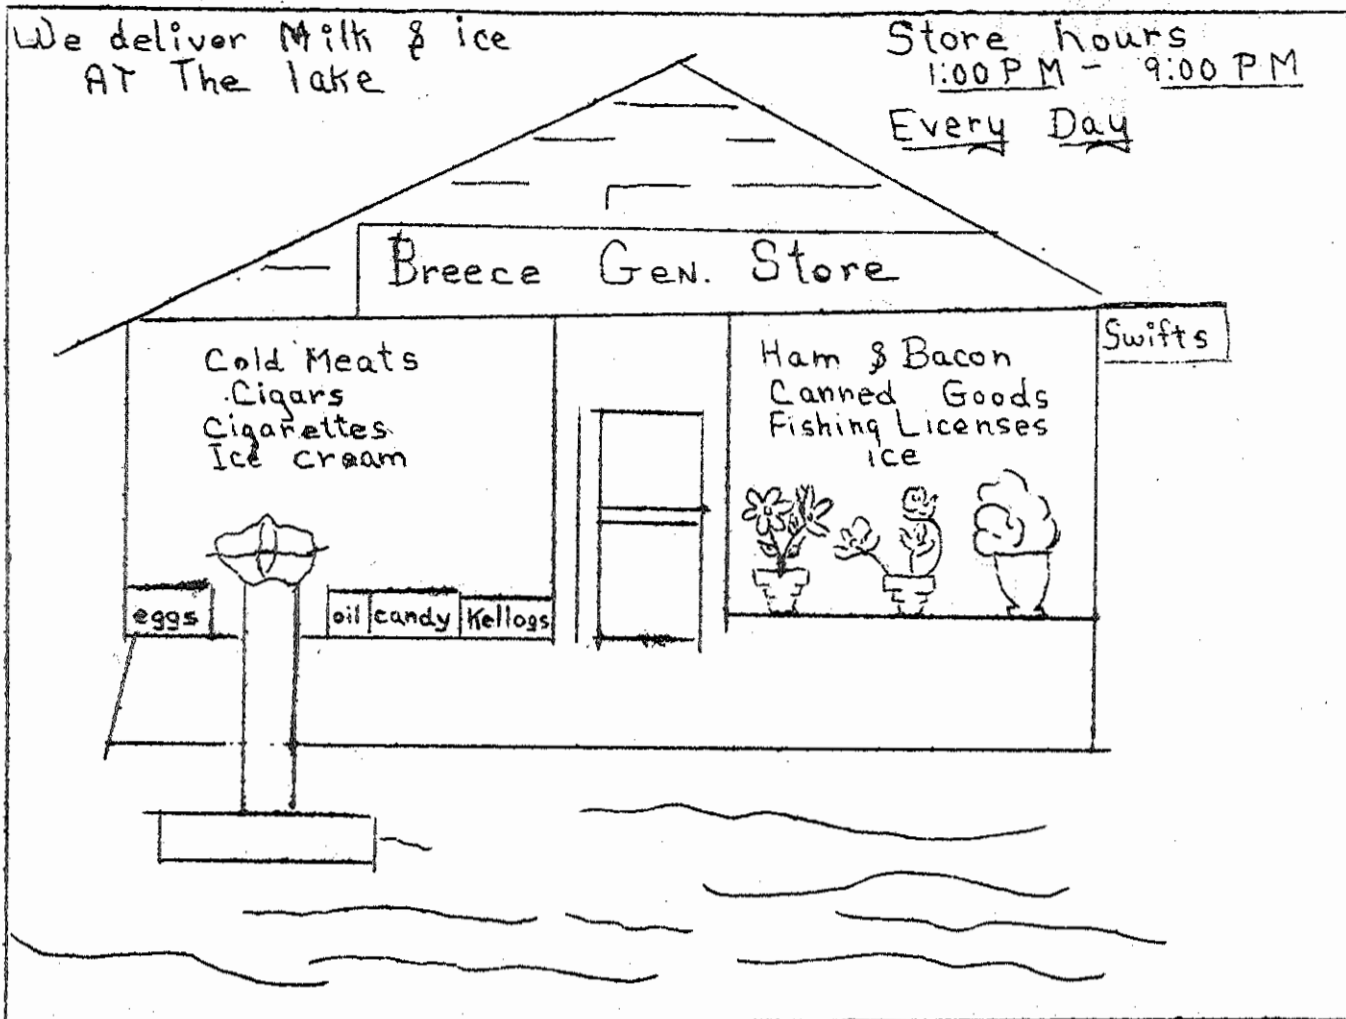 We deliver Milk & ice
AT The lake
Store hours
1:00 PM - 9:00 PM
Every Day
Breece Gen. Store
Swifts
Cold Meats
Cigars
Cigarettes
Ice cream
Ham & Bacon
Canned Goods
Fishing Licenses
ice
eggs
oil
candy
Kellogs